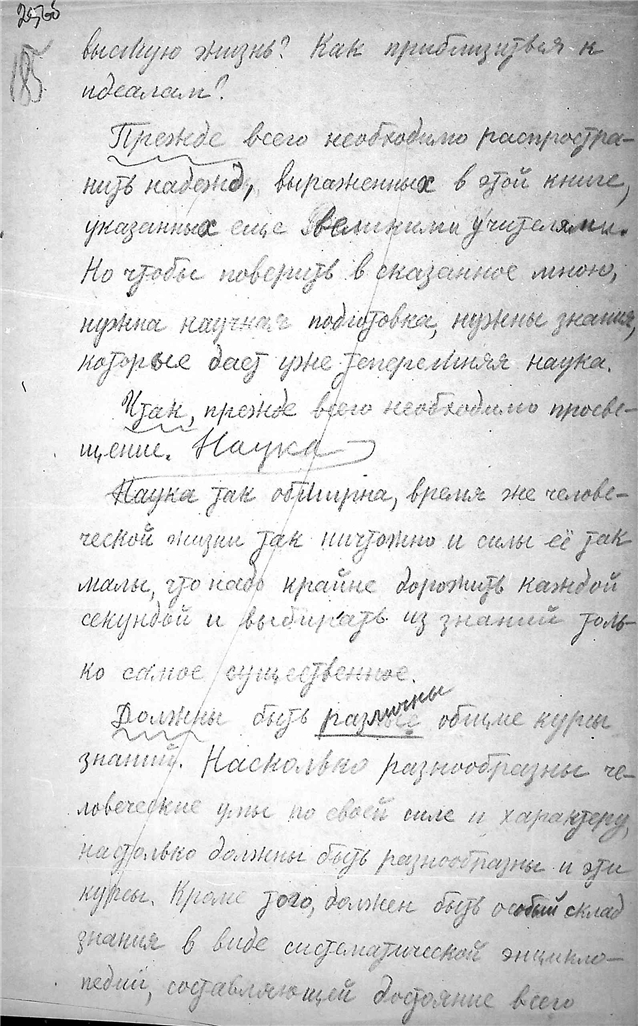 185
высшую жизнь? Как приблизиться к
идеалам?
Прежде всего необходимо распростра-
нить надежд, выраженных в этой книге,
указанных еще великими учителями.
Но чтобы поверить в сказанное мною,
нужна научная подготовка, нужны знания,
которые дает уже теперешняя наука.
Итак, прежде всего необходимо просве-
щение. Наука
Наука так обширна, время же челове-
ческой жизни так ничтожно и силы её так
малы, что надо крайне дорожить каждой
секундой и выбирать из знаний толь-
ко самое существенное.
Должны быть различны общие курсы
знаний. Насколько разнообразны че-
ловеческие умы по своей силе и характеру,
настолько должны быть разнообразны и эти
курсы. Кроме того, должен быть особый склад
знания в виде систематической энцикло-
педии, составляющей достояние всего